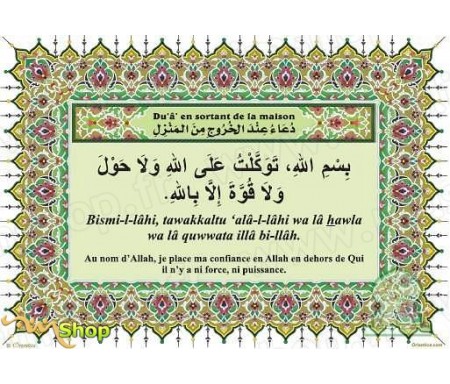 Du'â' en sortant de la maison
دُعَاءُ عِنْدَ الْخُرُوجِ مِنَ الْمَنْزِلِ
بِسْمِ اللهِ، تَوَكَّلْتُ عَلَى اللهِ وَلَا حَوْلَ
وَلَا قُوَّةَ إِلَّا بِاللهِ.
Bismi-l-lâhi, tawakkaltu ‘alâ-l-lâhi wa lâ hawla
wa lâ quwwata illâ bi-llâh.
Au nom d’Allah, je place ma confiance en Allah en dehors de Qui
il n’y a ni force, ni puissance.
Shop
Orientica.com